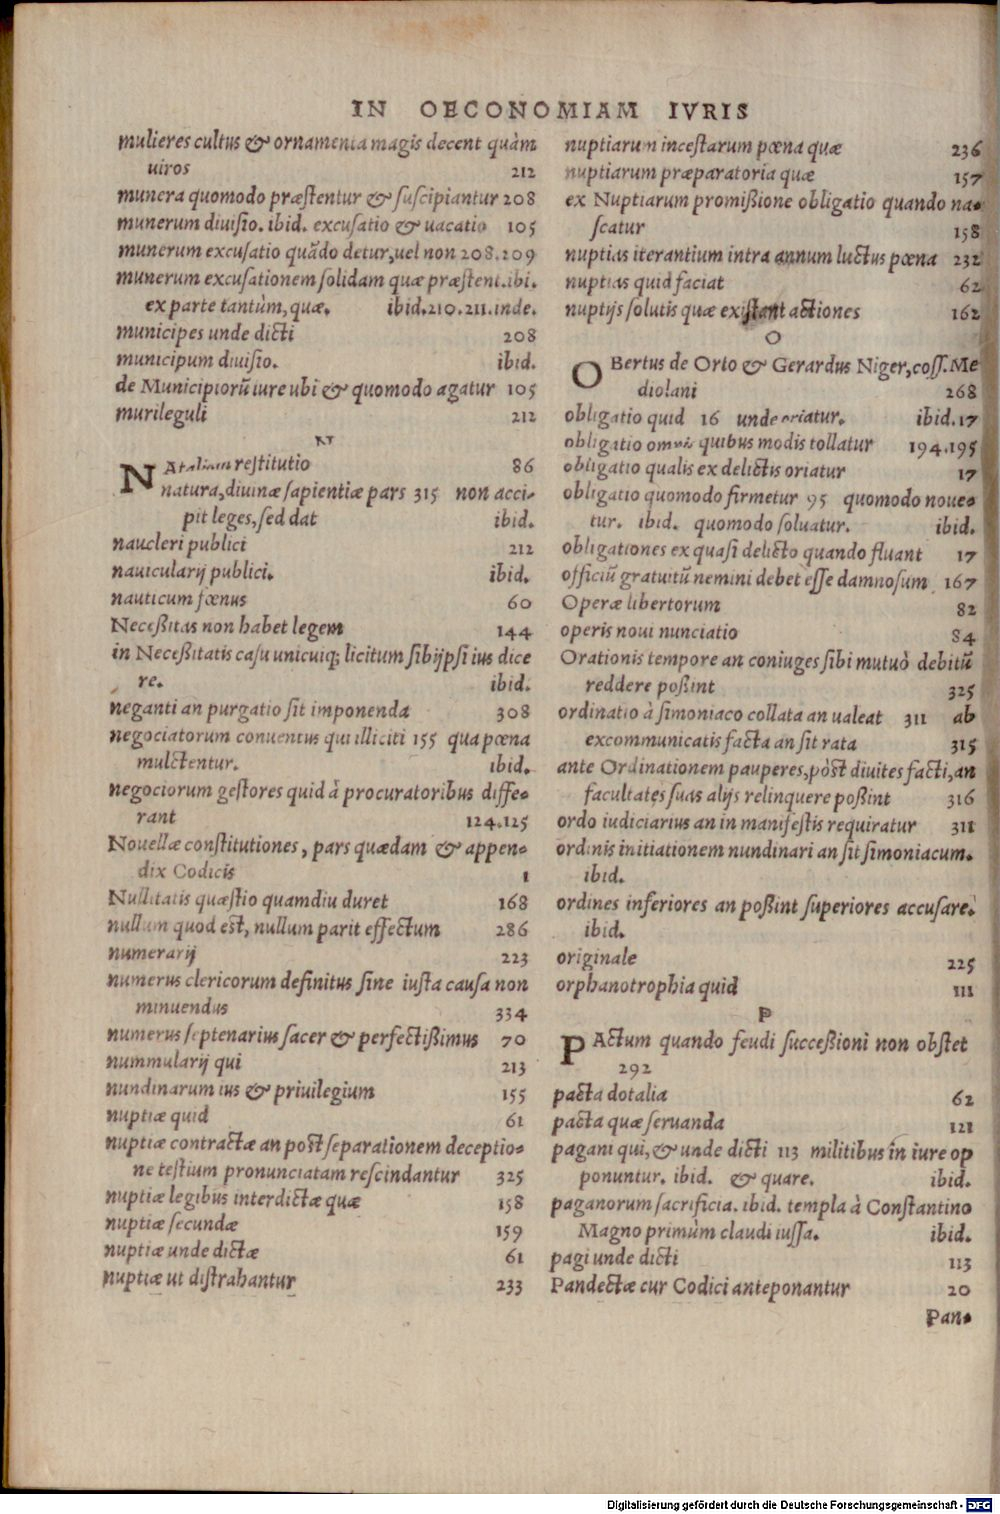 IN OECONOMIAM IVRIS
mulieres cultus & ornamenta magis decent quàm
uiros 212
munera quomodo præſtentur & ſuſcipiantur 208
munerum diuiſio. ibid. excuſatio & uacatio 105
munerum excuſatio quãdo detur, uel non 208.209
munerum excuſationem ſolidam quæ præſtent. ibi.
ex parte tantùm, quæ. ibid. 210. 211. inde.
municipes unde dicti 208
municipum diuiſio. ibid.
de Municipiorũ iure ubi & quomodo agatur 105
murileguli 212
N
NAtalium reſtitutio 86
natura, diuinæ ſapientiæ pars 315 non acci-
pit leges, ſed dat ibid.
naucleri publici 212
nauicularij publici. ibid.
nauticum fœnus 60
Neceßitas non habet legem 144
in Neceßitatis caſu unicuiq; licitum ſibijpſi ius dice
re. ibid.
neganti an purgatio ſit imponenda 308
negociatorum conuentus qui illiciti 155 qua pœna
mulctentur. ibid.
negociorum geſtores quid à procuratoribus diffe-
rant 124.125
Nouellæ conſtitutiones, pars quædam & appen-
dix Codicis 1
Nullitatis quæſtio quamdiu duret 168
nullum quod eſt, nullum parit effectum 286
numerarij 223
numerus clericorum definitus ſine iuſta cauſa non
minuendus 334
numerus ſeptenarius ſacer & perfectißimus 70
nummularij qui 213
nundinarum ius & priuilegium 155
nuptiæ quid 61
nuptiæ contractæ an poſt ſeparationem deceptio-
ne teſtium pronunciatam reſcindantur 325
nuptiæ legibus interdictæ quæ 158
nuptiæ ſecundæ 159
nuptiæ unde dictæ 61
nuptiæ ut diſtrahantur 233
nuptiarum inceſtarum pœna quæ 236
nuptiarum præparatoria quæ 157
ex Nuptiarum promißione obligatio quando na-
ſcatur 158
nuptias iterantium intra annum luctus pœna 232
nuptias quid faciat 62
nuptijs ſolutis quæ exiſtant actiones 162
O
OBertus de Orto & Gerardus Niger, coſſ. Me
diolani 268
obligatio quid 16 unde oriatur. ibid. 17
obligatio omnis quibus modis tollatur 194.195
obligatio qualis ex delictis oriatur 17
obligatio quomodo firmetur 95 quomodo noue-
tur. ibid. quomodo ſoluatur. ibid.
obligationes ex quaſi delicto quando fluant 17
officiũ gratuitũ nemini debet eſſe damnoſum 167
Operæ libertorum 82
operis noui nunciatio 84
Orationis tempore an coniuges ſibi mutuò debitũ
reddere poßint 325
ordinatio à ſimoniaco collata an ualeat 311 ab
excommunicatis facta an ſit rata 315
ante Ordinationem pauperes, pòſt diuites facti, an
facultates ſuas alijs relinquere poßint 316
ordo iudiciarius an in manifeſtis requiratur 311
ordinis initiationem nundinari an ſit ſimoniacum.
ibid.
ordines inferiores an poßint ſuperiores accuſare.
ibid.
originale 225
orphanotrophia quid 111
P
PActum quando feudi ſucceßioni non obſtet
292
pacta dotalia 62
pacta quæ ſeruanda 121
pagani qui, & unde dicti 113 militibus in iure op
ponuntur. ibid. & quare. ibid.
paganorum ſacrificia. ibid. templa à Conſtantino
Magno primùm claudi iuſſa. ibid.
pagi unde dicti 113
Pandectæ cur Codici anteponantur 20
Pan-
Digitalisierung gefördert durch die Deutsche Forschungsgemeinschaft - DFG